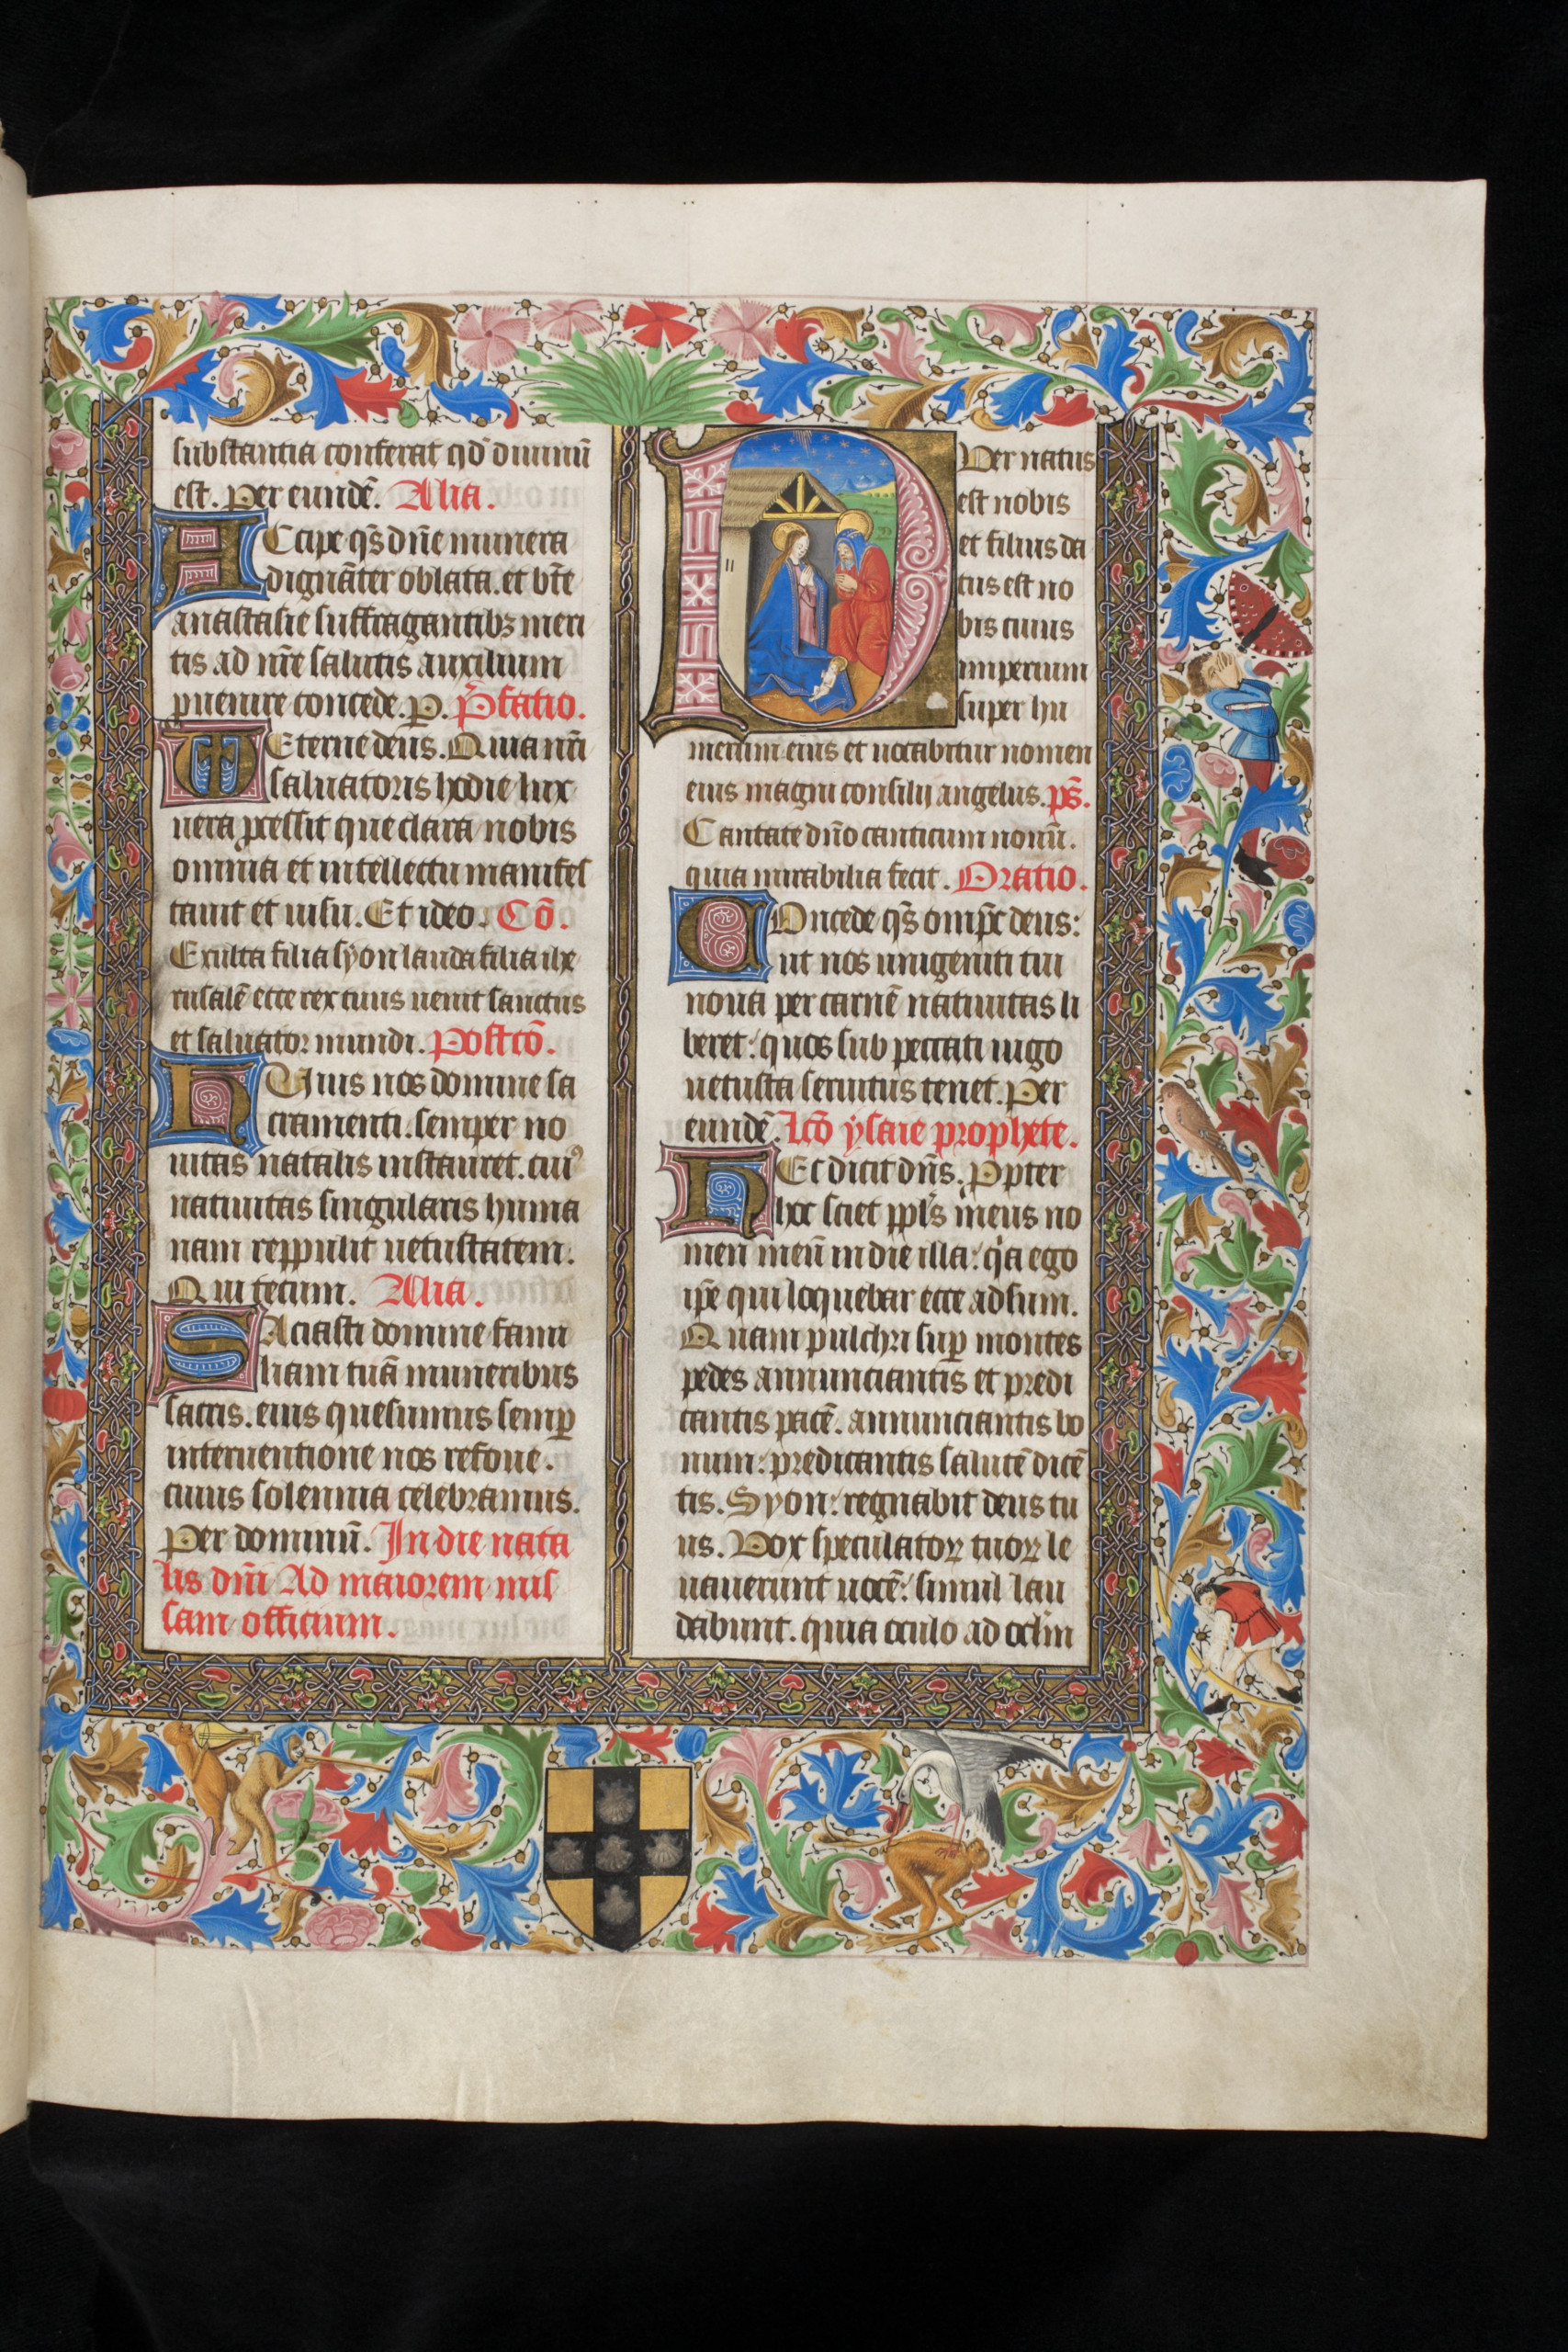 substantia conferat qd̄ diuinū
est. Per eundē. Alia.
ACcipe qs̄ dn̄e munera
dignāter oblata. et bt̄e
anastasie suffragantibꝫ meri
tis ad nr̄e salutis auxilium
p̄uenire concede. P. P̄fatio.
VEterne deus. Quia nr̄i
saluatoris hodie lux
uera p̄cessit que clara nobis
omnia et intellectu manifes
tauit et uisu. Et ideo. Cō.
Exulta filia syon lauda filia ihe
rusalē ecce rex tuus uenit sanctus
et saluator mundi. Postcō.
HUius nos domine sa
cramenti. semper no
uitas natalis instauret. cuiꝰ
natiuitas singularis huma
nam reppulit uetustatem.
Qui tecum. Alia.
SAciasti domine fami
liam tuā muneribus
sacris. eius quesumus semꝑ
interuentione nos refoue.
cuius solennia celebramus.
Per dominū. In die nata
lis dn̄i Ad maiorem mis
sam officium.
PUer natus
est nobis
et filius da
tus est no
bis cuius
imperium
super hu
merum eius et uocabitur nomen
eius magni consilij angelus. ps̄.
Cantate dn̄o canticum nouū.
quia mirabilia fecit. Oratio.
COncede qs̄ omp̄c deus:
ut nos unigeniti tui
noua per carnē natiuitas li
beret: quos sub peccati iugo
uetusta seruitus tenet. Per
eundē. Lcō ysaie prophete.
HEc dicit dn̄s. Ꝓpter
hoc sciet ppl̄s meus no
men meū in die illa: qͥa ego
ip̄e qui loquebar ecce adsum.
Quam pulchri suꝑ montes
pedes annunciantis et predi
cantis pacē. annunciantis bo
num: predicantis salutē dicē
tis. Syon: regnabit deus tu
us. Vox speculatoꝝ tuoꝝ le
uauerunt uocē: simul lau
dabunt. quia oculo ad oclm̄